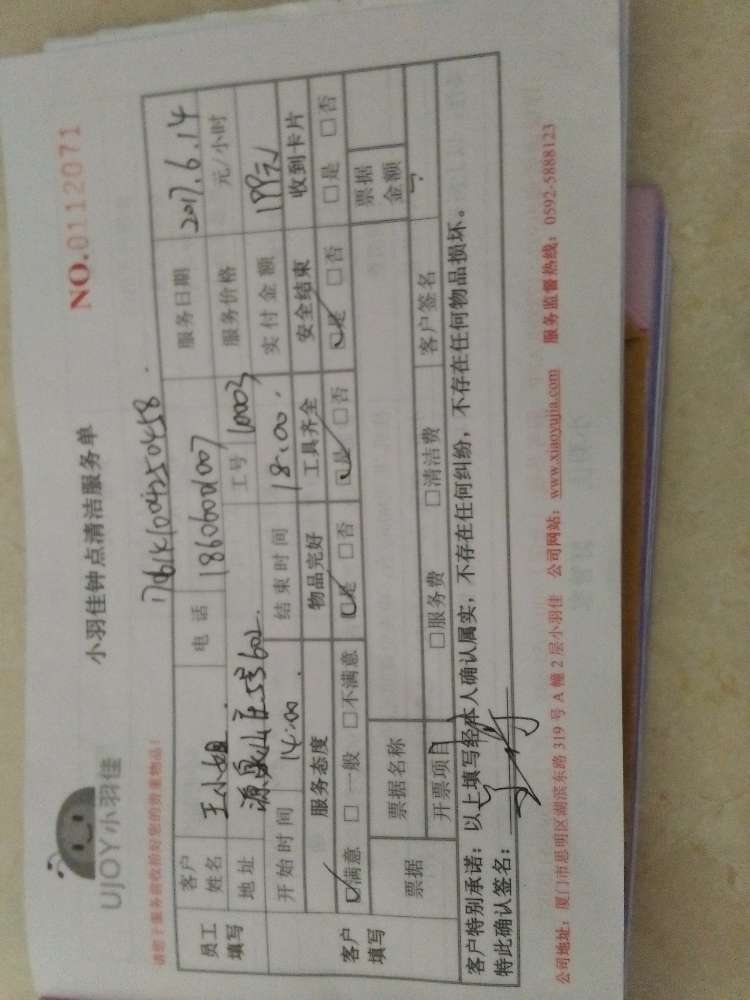 UJOY小羽佳
小羽佳钟点清洁服务单
NO.0112071
请您于服务前收拾好您的贵重物品!
员工填写
客户姓名 王小姐 电话 服务日期 2017.6.14
地址 工号 10003 服务价格 元/小时
客户填写
开始时间 14:00 结束时间 18:00 实付金额 199元
服务态度 物品完好 工具齐全 安全结束 收到卡片
☑满意 □一般 □不满意 ☑是 □否 ☑是 □否 ☑是 □否 □是 □否
票据 票据名称 票据金额
开票项目 □服务费 □清洁费 客户签名
客户特别承诺:以上填写经本人确认属实,不存在任何纠纷,不存在任何物品损坏。
特此确认签名:
公司地址:厦门市思明区湖滨东路319号A幢2层小羽佳 公司网站:www.xiaoyujia.com 服务监督热线:0592-5888123